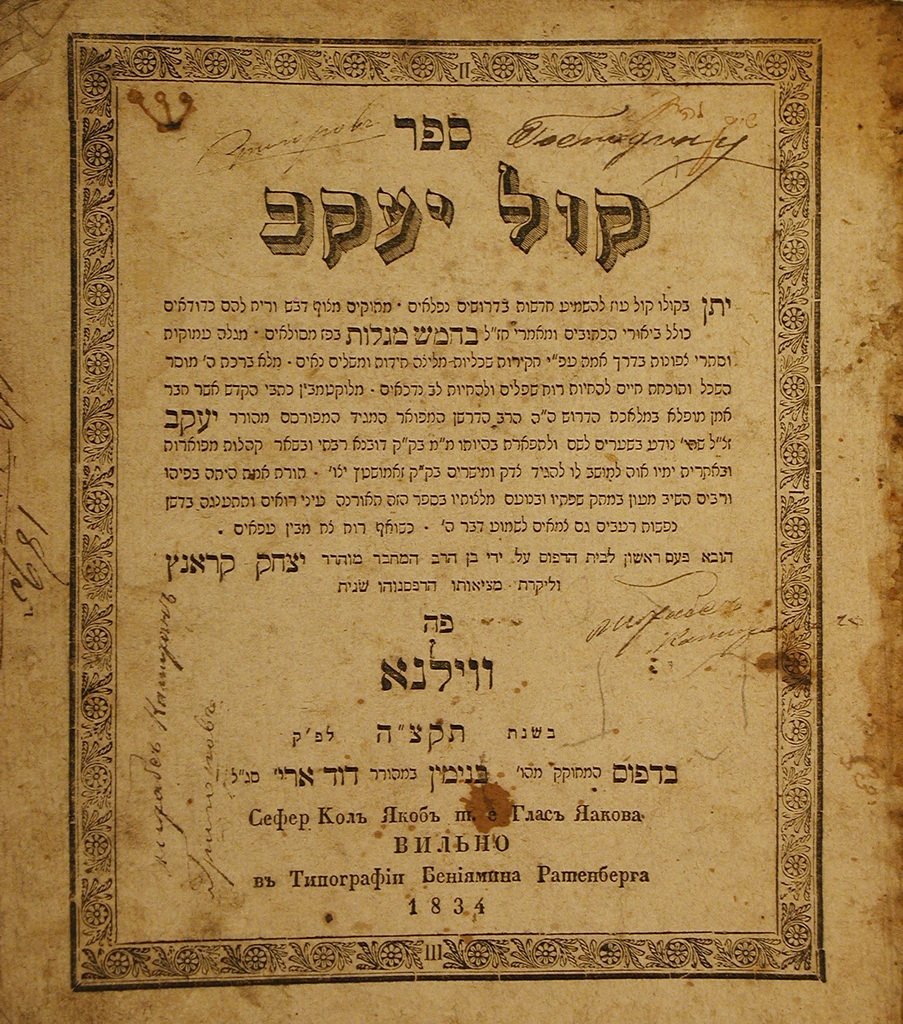 ספר
קול יעקב
יתן בקולו קול עוז להשמיע חדשות בדרושים נפלאים · מתוקים מנופף דבש וריח להם כדודאים
כולל ביאורי הכתובים ומאמרי חז"ל בחמש מגלות בפז מסולאים · מגלה עמוקות
וסתרי צפונות בדרך אמת עפ"י חקירות שכליות מליצה חידות ומשלים נאים · מלא ברכת ה' מוסר
השכל ותוכחת חיים להחיות רוח שפלים ולהחיות לב נדכאים · מלוקט מבין כתבי הקדש אשר חבר
אמן מופלא במלאכת הדרוש ה"ה הרב הדרשן המפואר המגיד המפורסם מהורר יעקב
זצ"ל נודע בשערים לשם ולתפארת בהיותו מ"מ בק"ק דובנא רבתי ובשאר קהלות מפוארות
ובאחרית ימיו אוה למושב לו להגיד צדק ומישרים בק"ק זאמושטץ יצו' · תורת אמת היתה בפיהו
ורבים השיב מעון במתק שפתיו ובנועם מליצותיו בספר הזה תאורנה עיני רואים ותתענגנה בדשן
נפשות רעבים גם צמאים לשמוע דבר ה' · כשואף רוח צח מבין עפאים ·
הובא פעם ראשון לבית הדפוס על ידי בן הרב המחבר מוהרר יצחק קראנץ
וליקרת מציאותו הדפסנוהו שנית
פה
ווילנא
בשנת תקצ"ה לפ"ק
בדפוס המחוקק מהו' בנימין במהורר דוד ארי' סג"ל
Сеферъ Колъ Якобъ т. е Гласъ Яакова
ВИЛЬНО
въ Типографіи Беніямина Рашенберга
1834